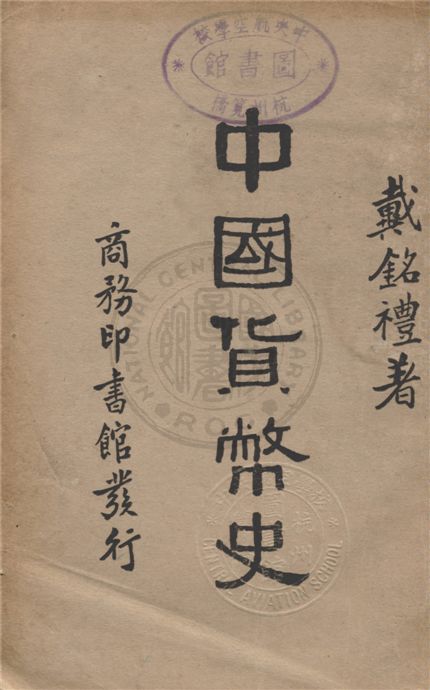 中央航空學校
圖書館
杭州筧橋
戴銘禮著
中國貨幣史
商務印書館發行
NATIONAL CENTRAL LIBRARY
R.O.C.
CENTRAL AVIATION SCHOOL